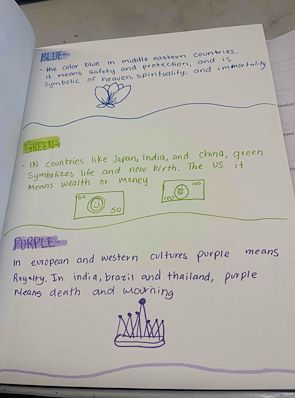 BLUE-
- the color blue in middle eastern countries.
it means safety and protection, and is
symbolic of heaven, spirituality, and immortality
GREEN-
- IN countries like Japan, India, and China, green
Symbolizes life and new birth. The US it
Means wealth or money
50
50
100
100
PURPLE-
In european and western cultures purple means
Royalty. In india, brazil and thailand, purple
Means death and mourning